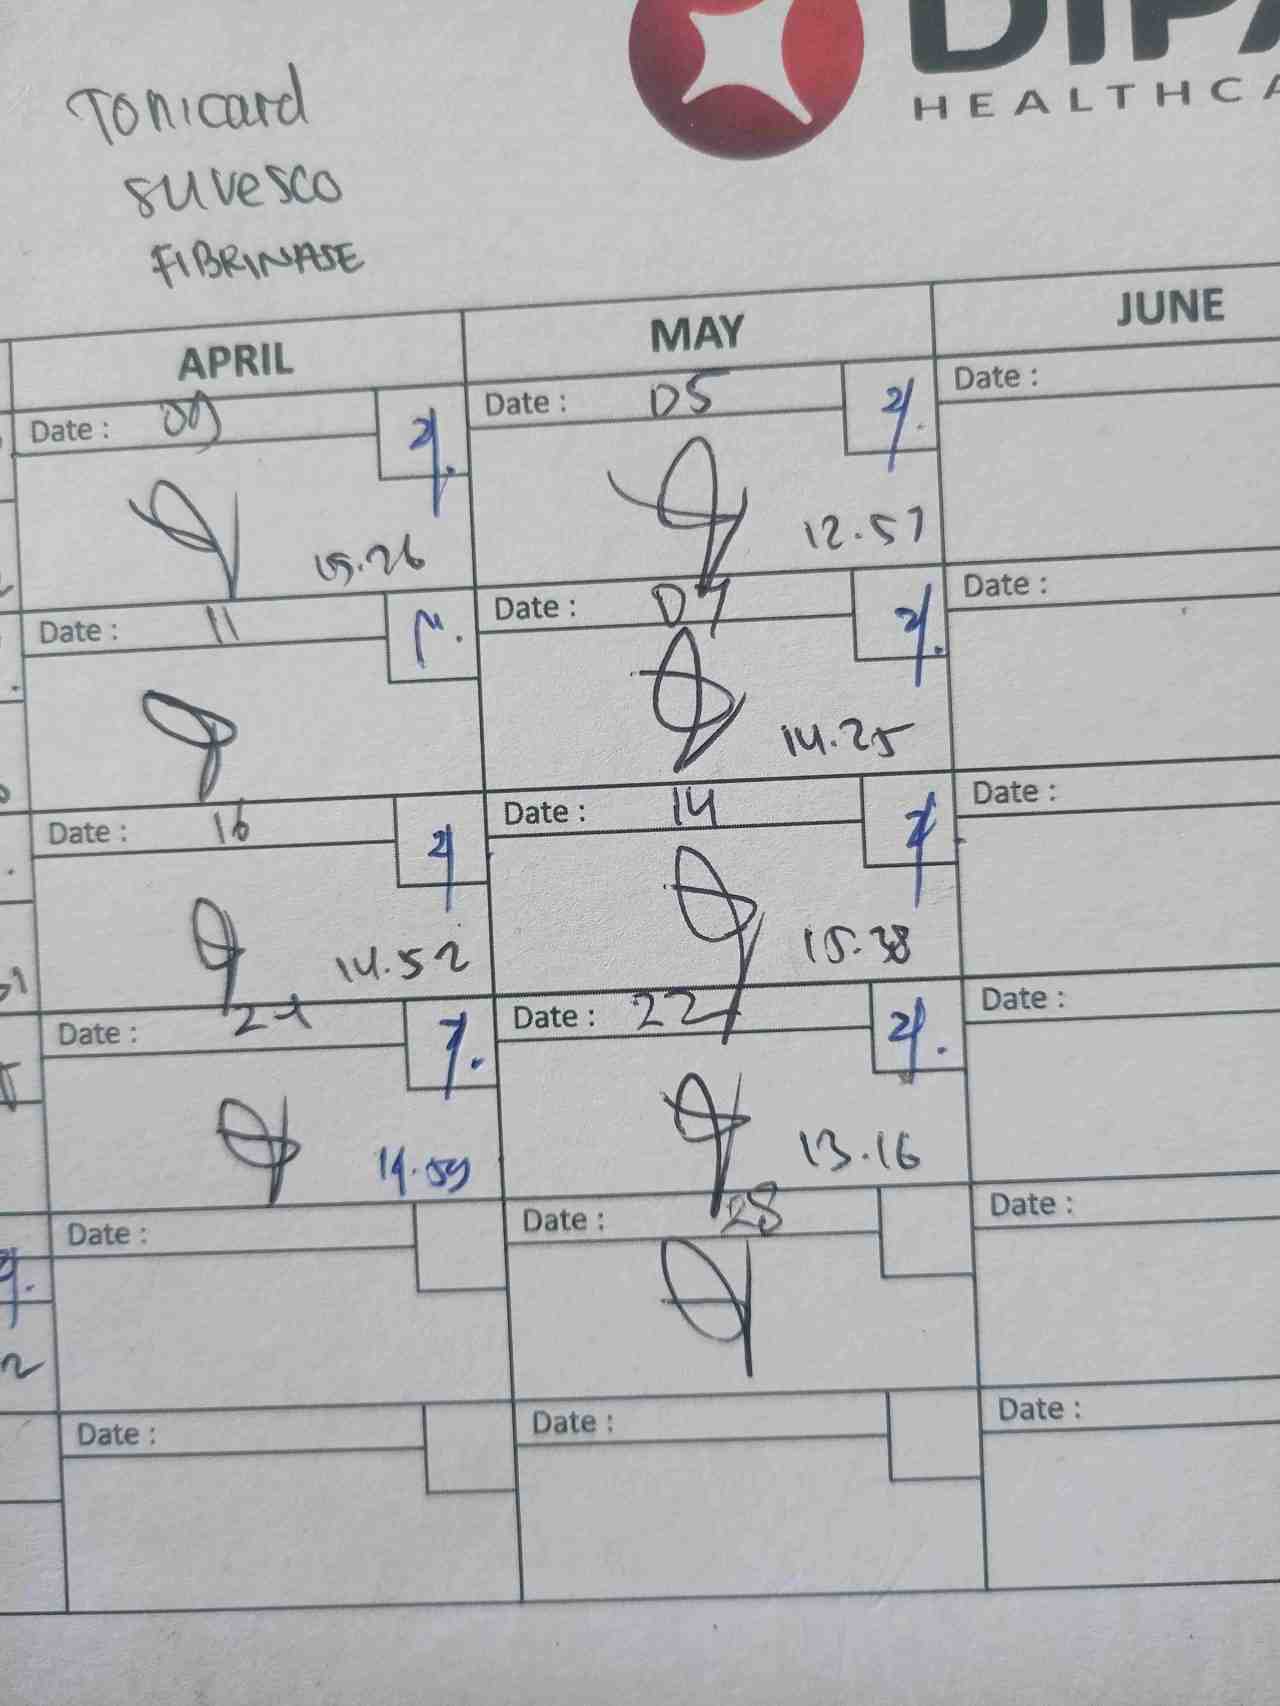 DIPA
HEALTHCA
Tonicard
suvesco
FIBRINASE
APRIL MAY JUNE
Date : 09 Date : 05 Date :
12.57
Date : 11 Date : 07 Date :
14.25
Date : 16 Date : 14 Date :
14.52 15.38
Date : Date : 22 Date :
14.59 13.16
Date : Date : 28 Date :
Date : Date : Date :